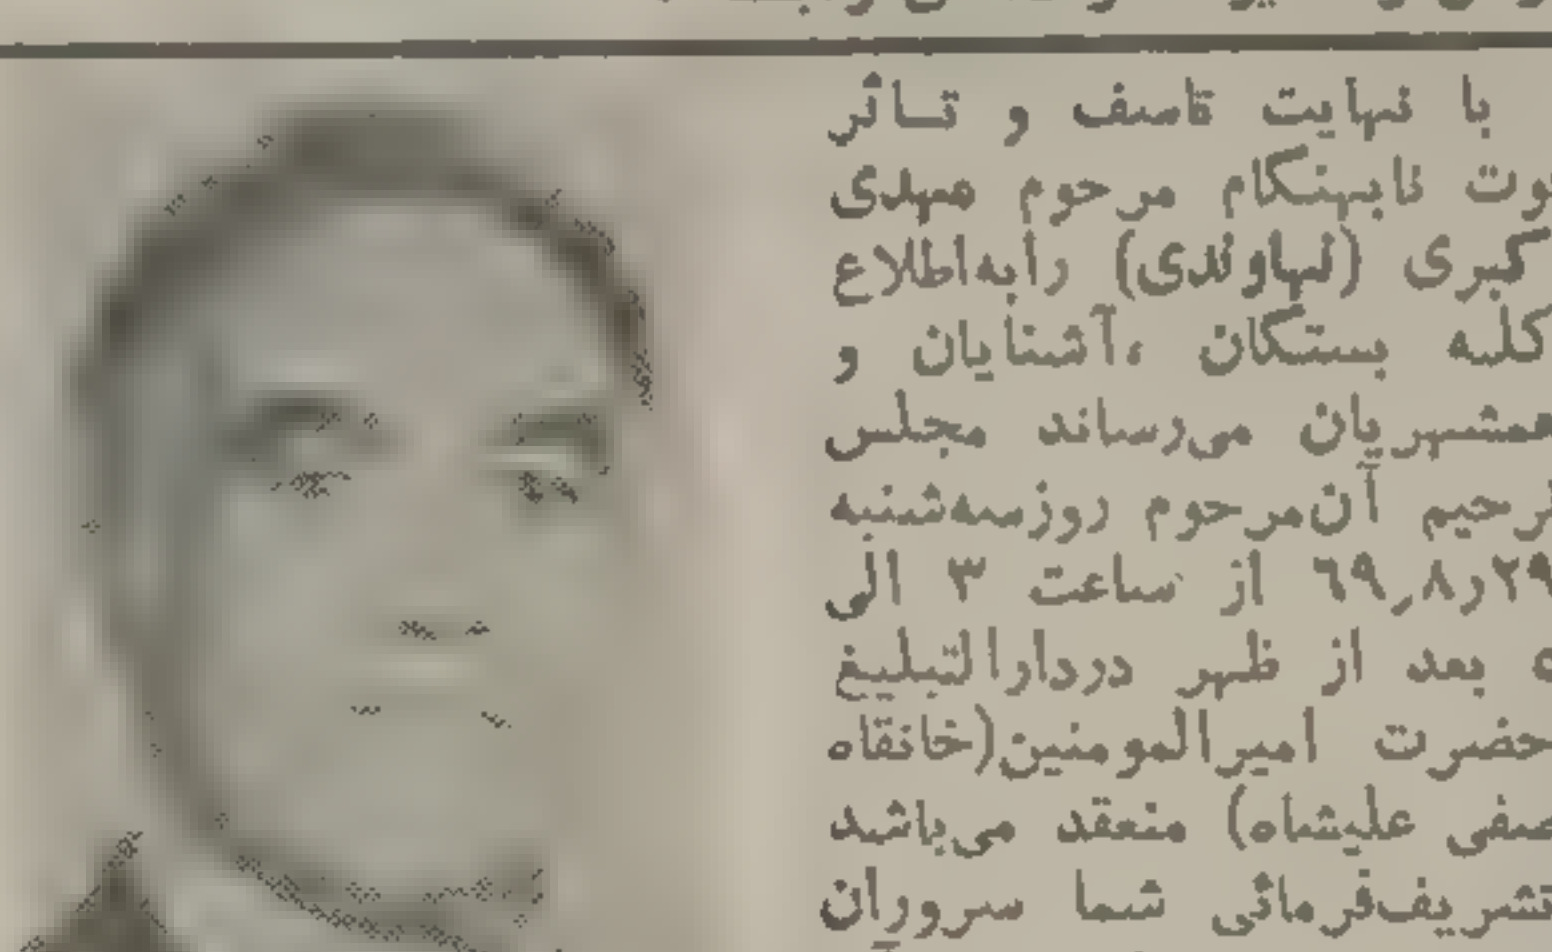 با نهایت تاسف و تـاثر
فوت نابهنگام مرحوم مهدی
کبری (نهاوندی) رابه‌اطلاع
کلیه بستگان ،آشنایان و
همشهریان می‌رساند مجلس
ترحیم آن‌مرحوم روزسه‌شنبه
۲۹ر۸ر۶۹ از ساعت ۳ الی
۵ بعد از ظهر دردارالتبلیغ
حضرت امیرالمومنین(خانقاه
صفی علیشاه) منعقد می‌باشد
تشریف‌فرمائی شما سروران